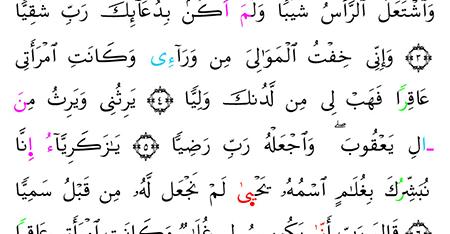 وَٱشۡتَعَلَ ٱلرَّأۡسُ شَيۡبٗا وَلَمَ أَكُنۢ بِدُعَآئِكَ رَبِّ شَقِيّٗا
﴿٣﴾ وَإِنِّي خِفۡتُ ٱلۡمَوَٰلِيَ مِن وَرَآءِى وَكَانَتِ ٱمۡرَأَتِي
عَاقِرٗا فَهَبۡ لِي مِن لَّدُنكَ وَلِيّٗا ﴿٤﴾ يَرِثُنِي وَيَرِثُ مِنَ
ـَالِ يَعۡقُوبَۖ وَٱجۡعَلۡهُ رَبِّ رَضِيّٗا ﴿٥﴾ يَٰزَكَرِيَّآءُ إِنَّا
نُبَشِّرُكَ بِغُلَٰمٍ ٱسۡمُهُۥ يَحۡيۭىٰ لَمۡ نَجۡعَل لَّهُۥ مِن قَبۡلُ سَمِيّٗا
﴿٦﴾ قَالَ رَبِّ أَنّۭىٰ يَكُونُ لِي غُلَٰمٞ وَكَانَتِ ٱمۡرَأَتِي عَاقِرٗا